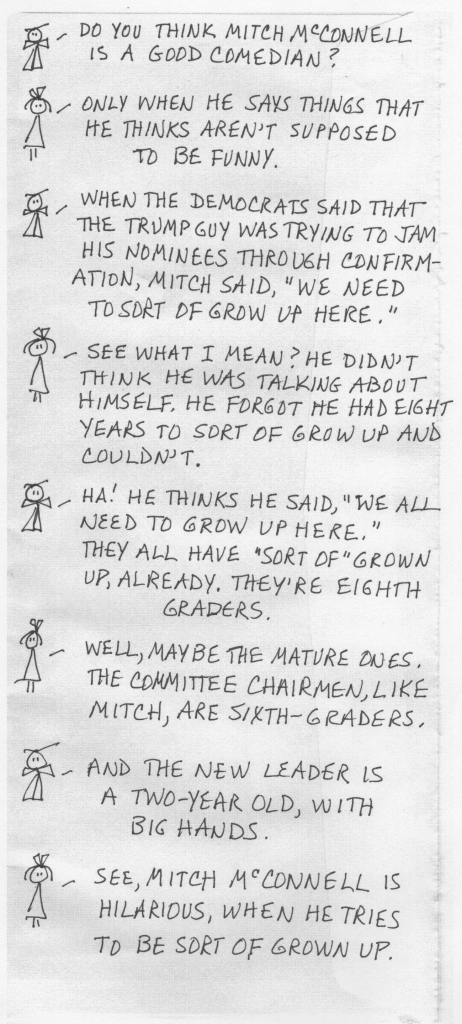 DO YOU THINK MITCH McCONNELL
IS A GOOD COMEDIAN?
ONLY WHEN HE SAYS THINGS THAT
HE THINKS AREN'T SUPPOSED
TO BE FUNNY.
WHEN THE DEMOCRATS SAID THAT
THE TRUMP GUY WAS TRYING TO JAM
HIS NOMINEES THROUGH CONFIRM-
ATION, MITCH SAID, "WE NEED
TO SORT OF GROW UP HERE."
SEE WHAT I MEAN? HE DIDN'T
THINK HE WAS TALKING ABOUT
HIMSELF. HE FORGOT HE HAD EIGHT
YEARS TO SORT OF GROW UP AND
COULDN'T.
HA! HE THINKS HE SAID, "WE ALL
NEED TO GROW UP HERE."
THEY ALL HAVE "SORT OF" GROWN
UP, ALREADY. THEY'RE EIGHTH
GRADERS.
WELL, MAYBE THE MATURE ONES.
THE COMMITTEE CHAIRMEN, LIKE
MITCH, ARE SIXTH-GRADERS.
AND THE NEW LEADER IS
A TWO-YEAR OLD, WITH
BIG HANDS.
SEE, MITCH McCONNELL IS
HILARIOUS, WHEN HE TRIES
TO BE SORT OF GROWN UP.